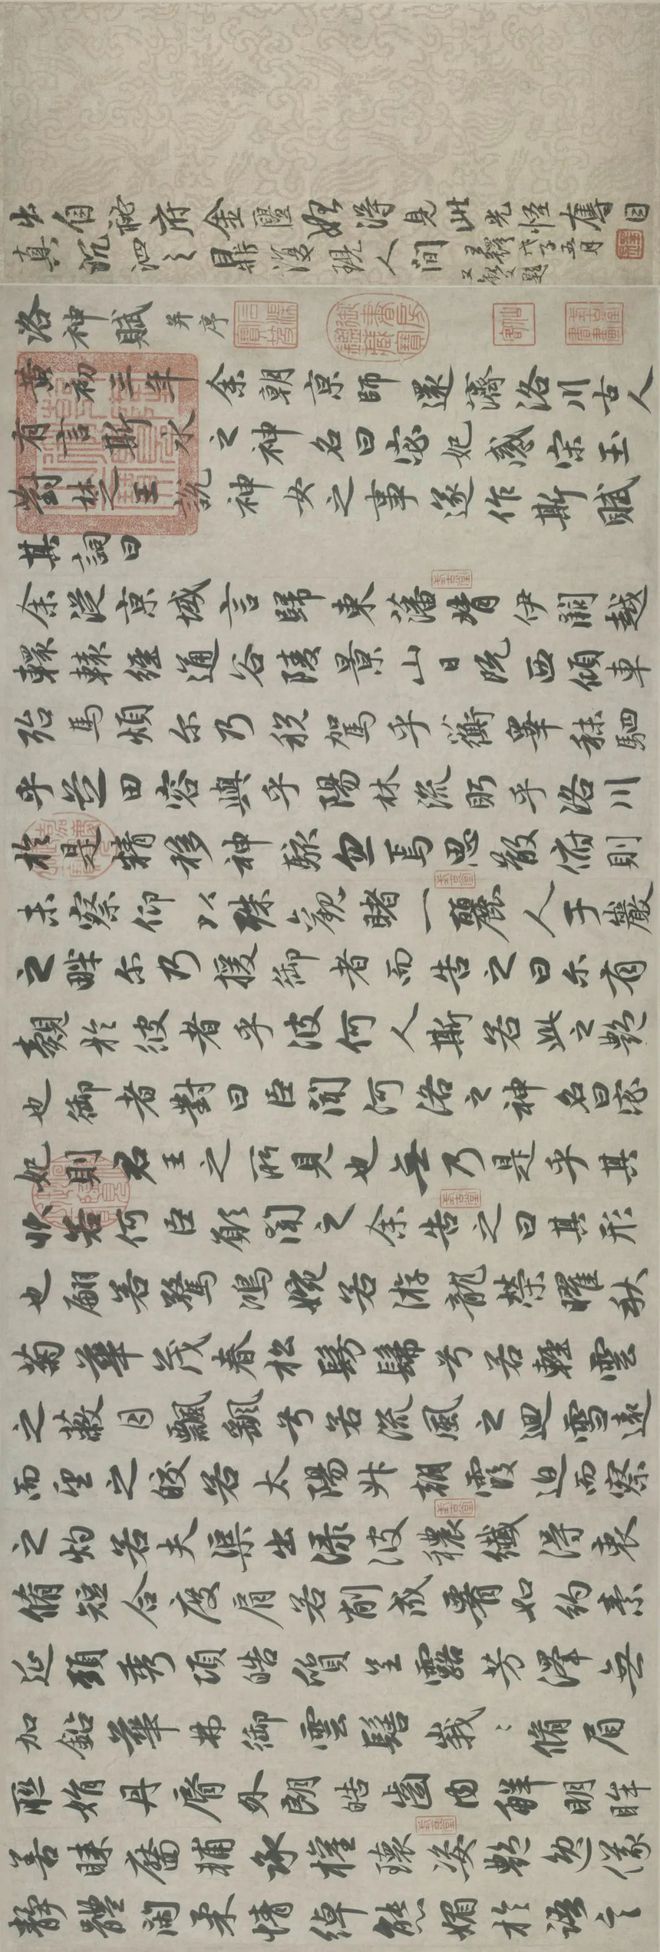 出自祕府金匱如得見此光怪奪目
真沉泗之鼎復現人間
戊子五月
洛神賦并序
黃初三年余朝京師還濟洛川古人
有言斯水之神名曰宓妃感宋玉
對楚王說神女之事遂作斯賦
其詞曰
余從京域言歸東藩背伊闕越
轘轅經通谷陵景山日既西傾車
殆馬煩尔乃稅駕乎蘅皋秣駟
乎芝田容與乎陽林流眄乎洛川
於是精移神駭忽焉思散俯則
未察仰以殊觀睹一麗人于巖
之畔尔乃援御者而告之曰尔有
覿於彼者乎彼何人斯若此之艷
也御者對曰臣聞河洛之神名曰宓
妃則君王之所見也無乃是乎其
狀若何臣願聞之余告之曰其形
也翩若驚鴻婉若游龍榮曜秋
菊華茂春松髣髴兮若輕雲
之蔽月飄颻兮若流風之迴雪遠
而望之皎若太陽升朝霞迫而察
之灼若夫渠出淥波穠纖得衷
脩短合度肩若削成如約素
延頸秀項皓質呈露芳澤無
加鉛華弗御雲髻峩〻脩眉
聯娟丹脣外朗皓齒內鮮明眸
善睞靨輔承權瓌姿艷逸儀
靜體閑柔情綽態媚於語言